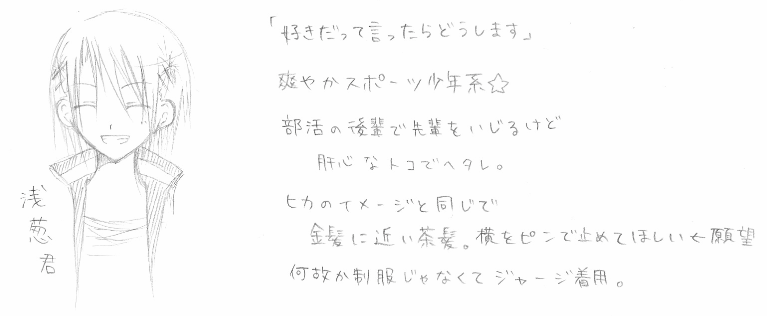 「好きだって言ったらどうします」
爽やかスポーツ少年系☆
部活の後輩で先輩をいじるけど
肝心なトコでヘタレ。
ヒカのイメージと同じで
金髪に近い茶髪。横をピンで止めてほしい←願望
何故か制服じゃなくてジャージ着用。
浅葱君